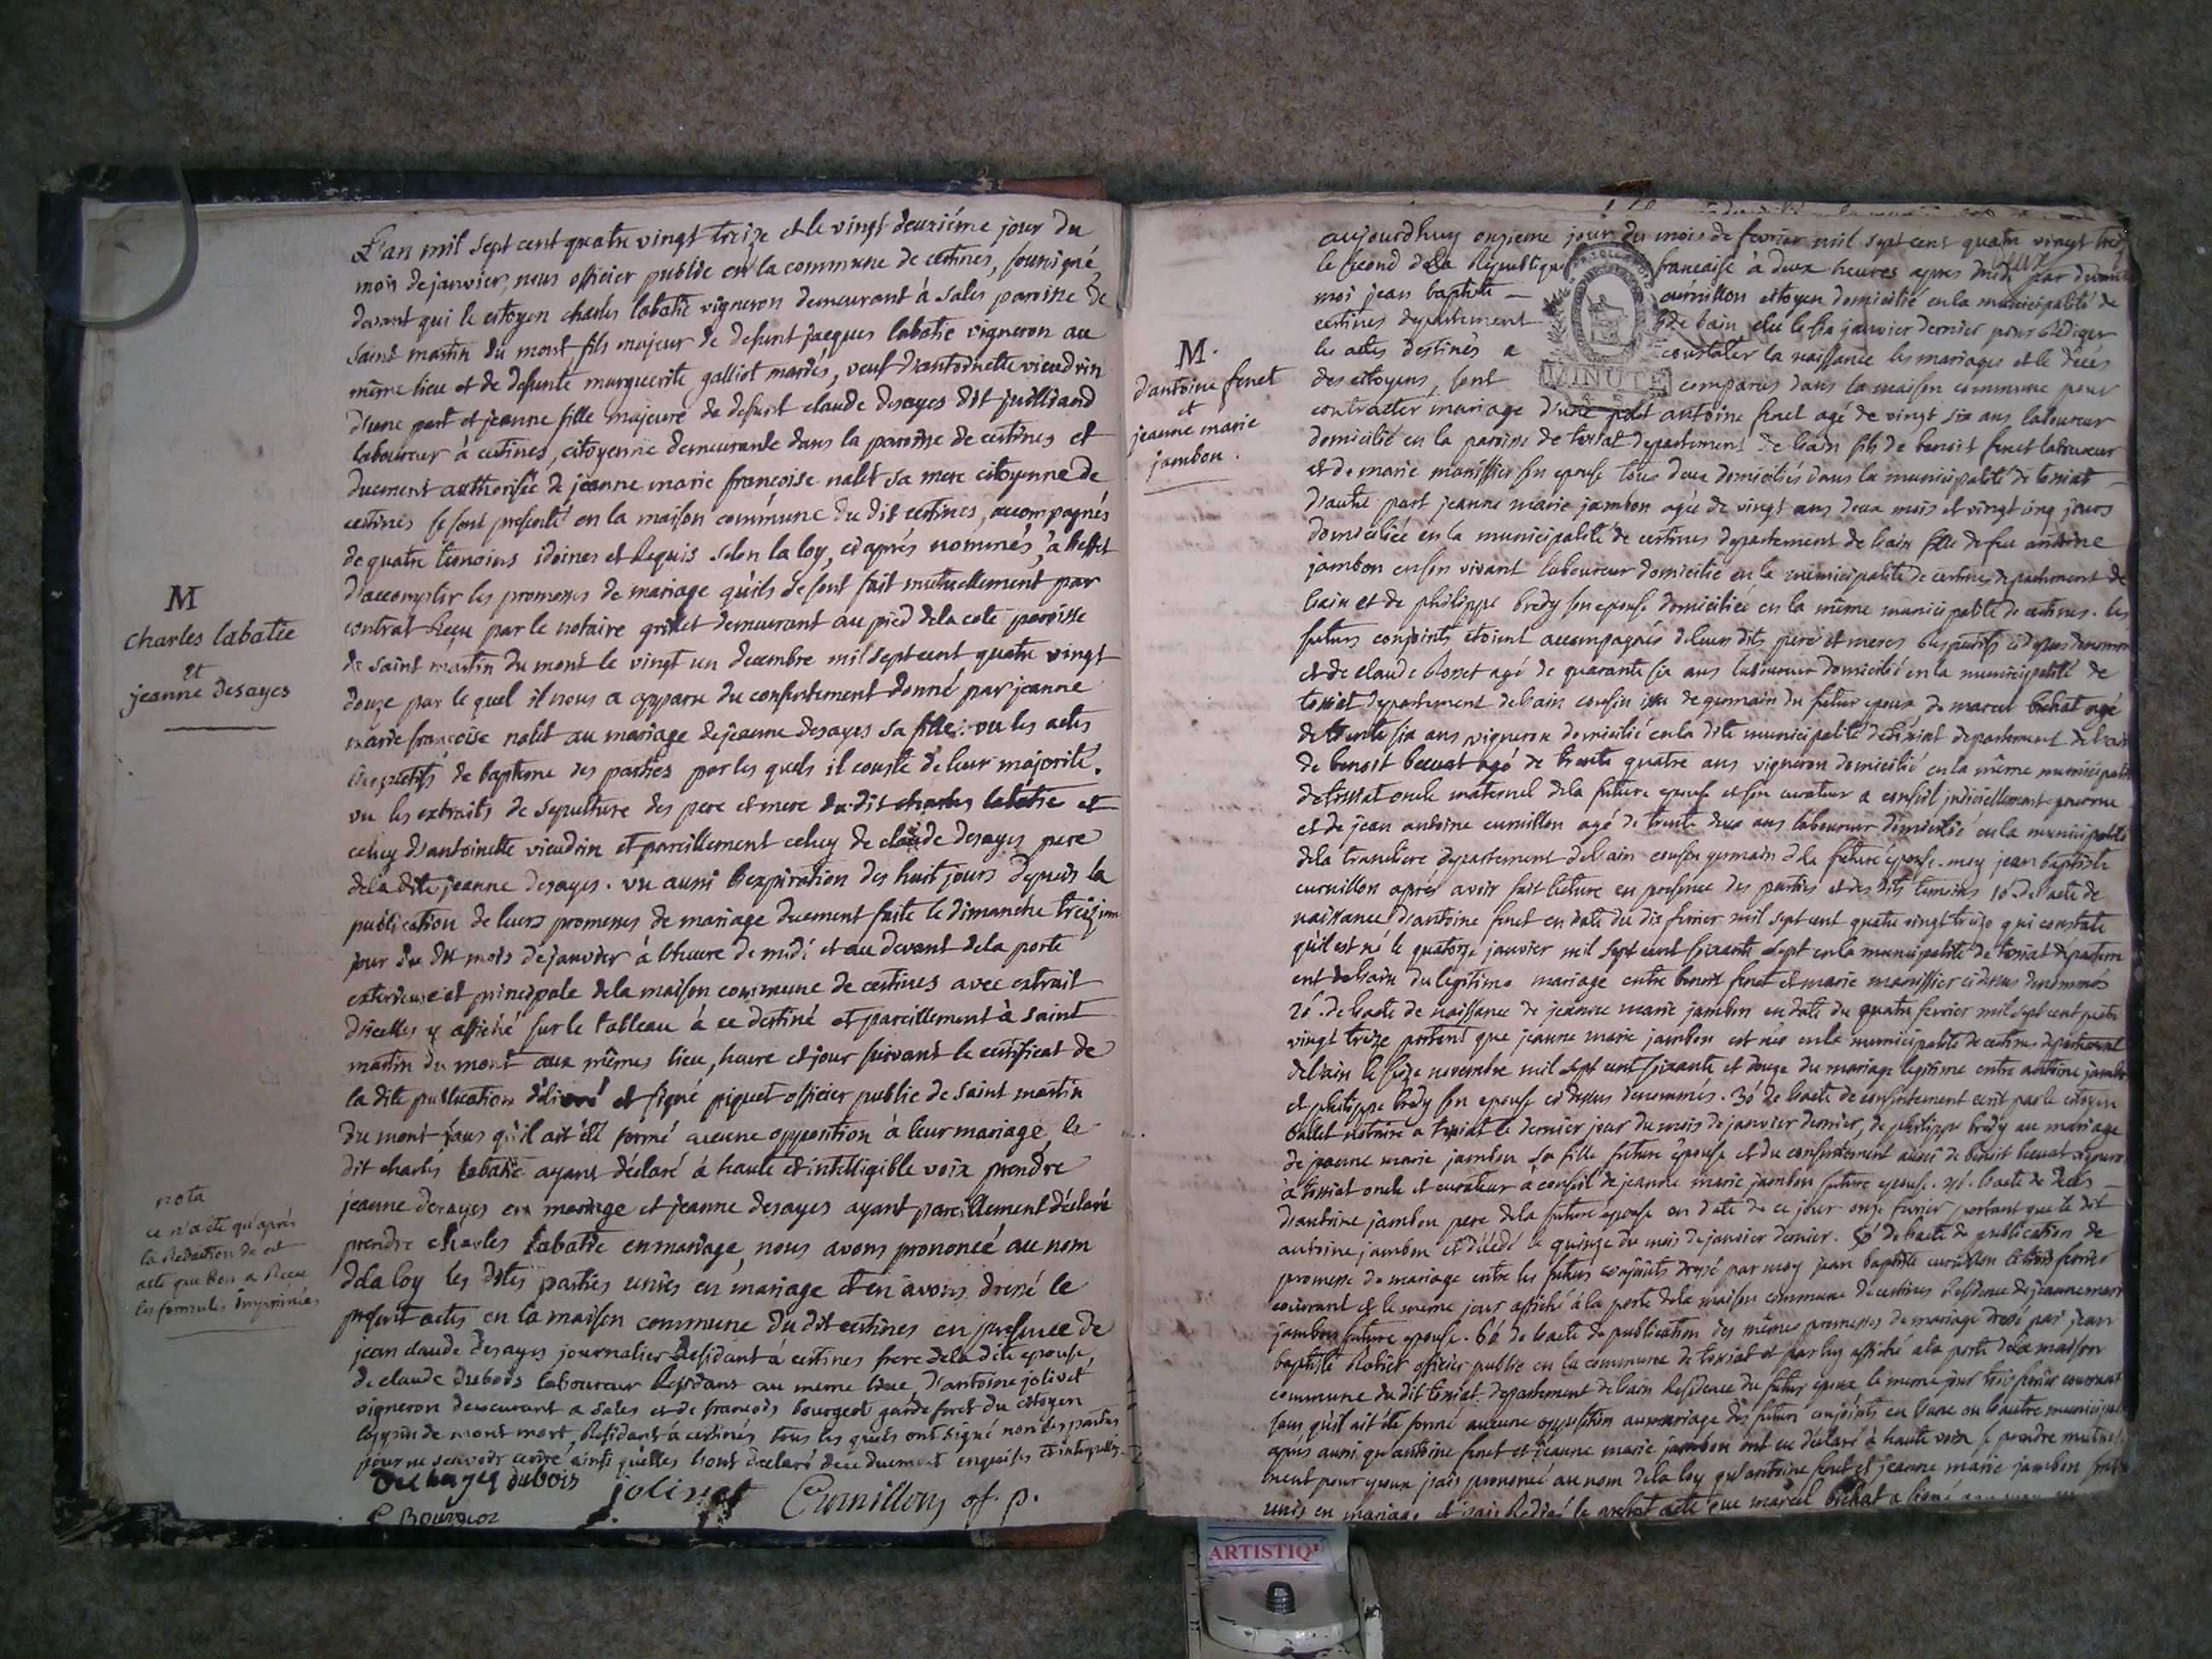 L'an mil sept cent quatre vingt treize et le vingt deuxiéme jour du
mois de janvier, nous officier public en la commune de certines, sousigné,
devant qui le citoyen charles labatie vigneron demeurant à sales paroisse de
saint martin du mont, fils majeur de defunt jacques labatie vigneron au
même lieu et de defunte marguerite galliot mariés, veuf d'antoinette vieudrin
d'une part et jeanne fille majeure de defunt claude desayes dit juilliand
laboureur à certines, citoyenne demeurante dans la paroisse de certines et
duement authorisée de jeanne marie françoise nalet sa mere citoyenne de
certines se sont presenté en la maison commune du dit certines, accompagnés
de quatre temoins idoines et Requis selon la loy, cÿ après nommés, à l'effet
d'accomplir les promesses de mariage qu'ils se sont fait mutuellement par
contrat Reçu par le notaire grillet demeurant au pied dela cote paroisse
de saint martin du mont le vingt un decembre mil sept cent quatre vingt
douze par le quel il nous a apparu du consentement donné par jeanne
marie françoise nalet au mariage de jeanne desayes sa fille : vu les actes
Respectifs de bapteme des parties par les quels il conste de leur majorité.
vu les extraits de sepulture des pere et mere du dit charles labatie et
celuy d'antoinette vieudrin et pareillement celuy de claude desayes pere
dela dite jeanne desayes. vu aussi l'expiration des huit jours depuis la
publication de leurs promesses de mariage duement faite le dimanche treizieme
jour du dit mois de janvier à l'heure de midi et au devant dela porte
exterieure et principale dela maison commune de certines avec extrait
d'icelles y affiché sur le tableau à ce destiné et pareillement à saint
martin du mont aux mêmes lieu, heure et jour suivant le certificat de
la dite publication délivré et signé piquet officier public de saint martin
du mont sans qu'il ait été formé aucune opposition à leur mariage, le
dit charles labatie ayant déclaré à haute et intelligible voix prendre
jeanne desayes en mariage et jeanne desayes ayant pareillement déclaré
prendre charles labatie en mariage, nous avons prononcé au nom
dela loy les dites parties unies en mariage et en avons dressé le
present actes en la maison commune du dit certines en presence de
jean claude desayes journalier Residant à certines frere dela dite epouse,
de claude dubois laboureur Residant au meme lieu, d'antoine jolivet
vigneron demeurant a sales et de françois bourgeot garde foret du citoyen
de mont mort, Residant à certines tous les quels ont signé non les parties
pour ne sçavoir ecrire ainsi quelles l'ont declaré de ce duement enquises et interpellées.
desayes dubois jolivet Curnillon of. p.
M
charles labatie
et
jeanne desayes
nota
ce n'a été qu'après
la Redaction de cet
acte que l'on a Recu
les formules imprimées
M.
d'antoine feret
et
jeanne marie
jambon.
MINUTE
aujourdhuy onzieme jour du mois de fevrier mil sept cent quatre vingt treize
le second dela Republique francaise à deux heures apres midi par devant
moi jean baptiste — curnillon citoyen domicilié en la municipalité de
certines departement de l'ain elu le janvier dernier pour Rédiger
les actes destinés a constater la naissance les mariages et le décès
des citoyens, sont comparus dans la maison commune pour
contracter mariage d'une part antoine feret agé de vingt six ans laboureur
domicilié en la paroisse de tossiat departement de l'ain fils de benoist feret laboureur
et de marie manissier son epouse tous deux domiciliés dans la municipalité de tossiat —
d'autre part jeanne marie jambon agée de vingt ans deux mois et vingt cinq jours
domiciliée en la municipalité de certines departement de l'ain fille de feu antoine
jambon en son vivant laboureur domicilié en la municipalité de certines departement de
l'ain et de philippe bredy son epouse domiciliée en la même municipalité de certines. les
futurs conjoints étoient accompagnés de leurs dits pere et meres Respectifs ci dessus denommés
et de claude Rosset agé de quarante six ans laboureur domicilié en la municipalité de
tossiat departement de l'ain cousin issu de germain du futur epoux, de marcel bichat agé
de trente six ans vigneron domicilié en la dite municipalité de tossiat departement de l'ain
de benoit becuat agé de trente quatre ans vigneron domicilié en la même municipalité
de tossiat oncle maternel dela future epouse et son curateur a conseil judiciellement pourvu
et de jean antoine curnillon agé de trente deux ans laboureur domicilié en la municipalité
dela tranclière departement de l'ain cousin germain dela future épouse. moy jean baptiste
curnillon après avoir fait lecture en presence des parties et des dits temoins 1o de l'acte de
naissance d'antoine feret en date du dix fevrier mil sept cent quatre vingt treize qui constate
qu'il est né le quatorze janvier mil sept cent soixante sept en la municipalité de tossiat departem
ent de l'ain du legitime mariage entre benoit feret et marie manissier ci dessus denommés
2o. de l'acte de naissance de jeanne marie jambon en date du quatre fevrier mil sept cent quatre
vingt treize portant que jeanne marie jambon est née en la municipalité de certines departement
de l'ain le seize novembre mil sept cent soixante et douze du mariage legitime entre antoine jambon
et philippe bredy son epouse ci dessus denommés. 3o de l'acte de consentement ecrit par le citoyen
ballet notaire a tossiat le dernier jour du mois de janvier dernier, de philippe bredy au mariage
de jeanne marie jambon sa fille future épouse et du consentement aussi de benoit becuat vigneron
à tossiat oncle et curateur à conseil de jeanne marie jambon future epouse. 4o. l'acte de deces —
d'antoine jambon pere dela future epouse en date de ce jour onze fevrier portant que le dit
antoine jambon est décédé le quinze du mois de janvier dernier. 5o de l'acte de publication de
promesse de mariage entre les futurs conjoints dressé par moy jean baptiste curnillon le trois fevrier
courant et le meme jour affiché à la porte dela maison commune de certines Residence de jeanne marie
jambon future epouse. 6o de l'acte de publication des mêmes promesses de mariage dressé par jean
baptiste officier public en la commune de tossiat et par luy affiché a la porte dela maison
commune du dit tossiat departement de l'ain Residence du futur epoux le meme jour trois fevrier courant
sans qu'il ait été formé aucune opposition au mariage des futurs conjoints en l'une ou l'autre municipalité
apres aussi qu'antoine feret et jeanne marie jambon ont eu déclaré à haute voix se prendre mutuelle
ment pour epoux j'ais prononcé au nom dela loy qu'antoine feret et jeanne marie jambon sont
unis en mariage et j'ais Redigé le present acte que marcel bichat a signé
ARTISTIQ